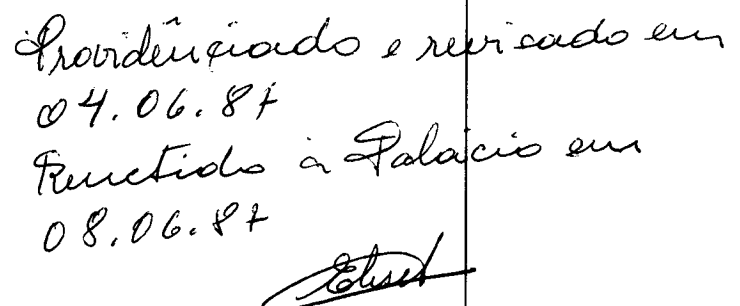 Providênciado e revisado em
04.06.87
Remetido à Palácio em
08.06.87